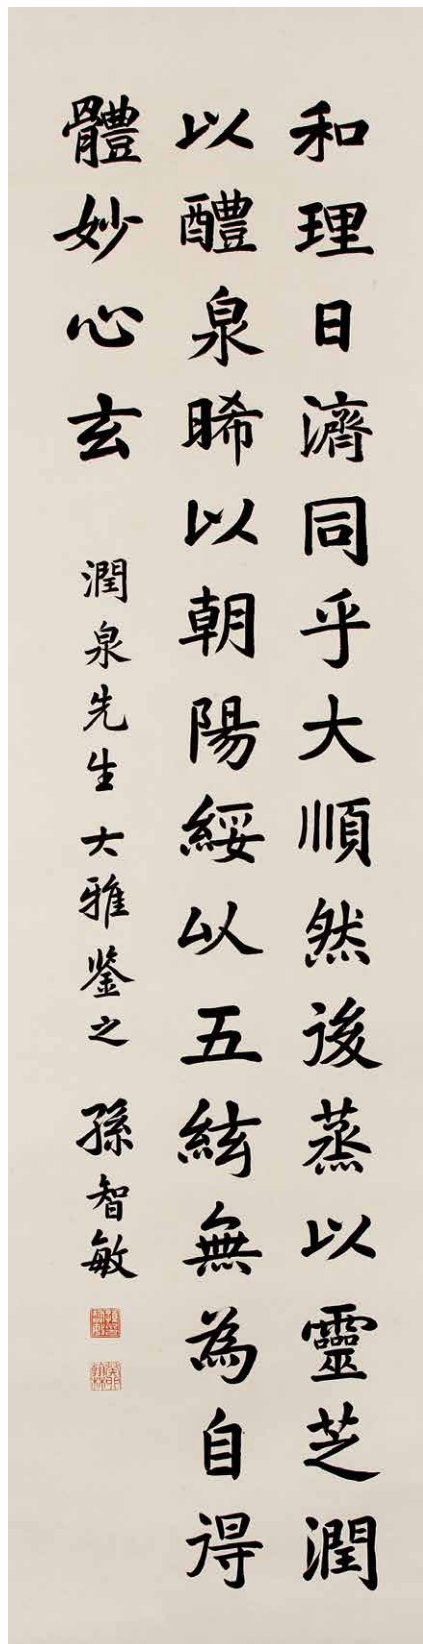 和理日濟同乎大順然後蒸以靈芝潤
以醴泉晞以朝陽綏以五絃無為自得
體妙心玄
潤泉先生大雅鉴之
孫智敏